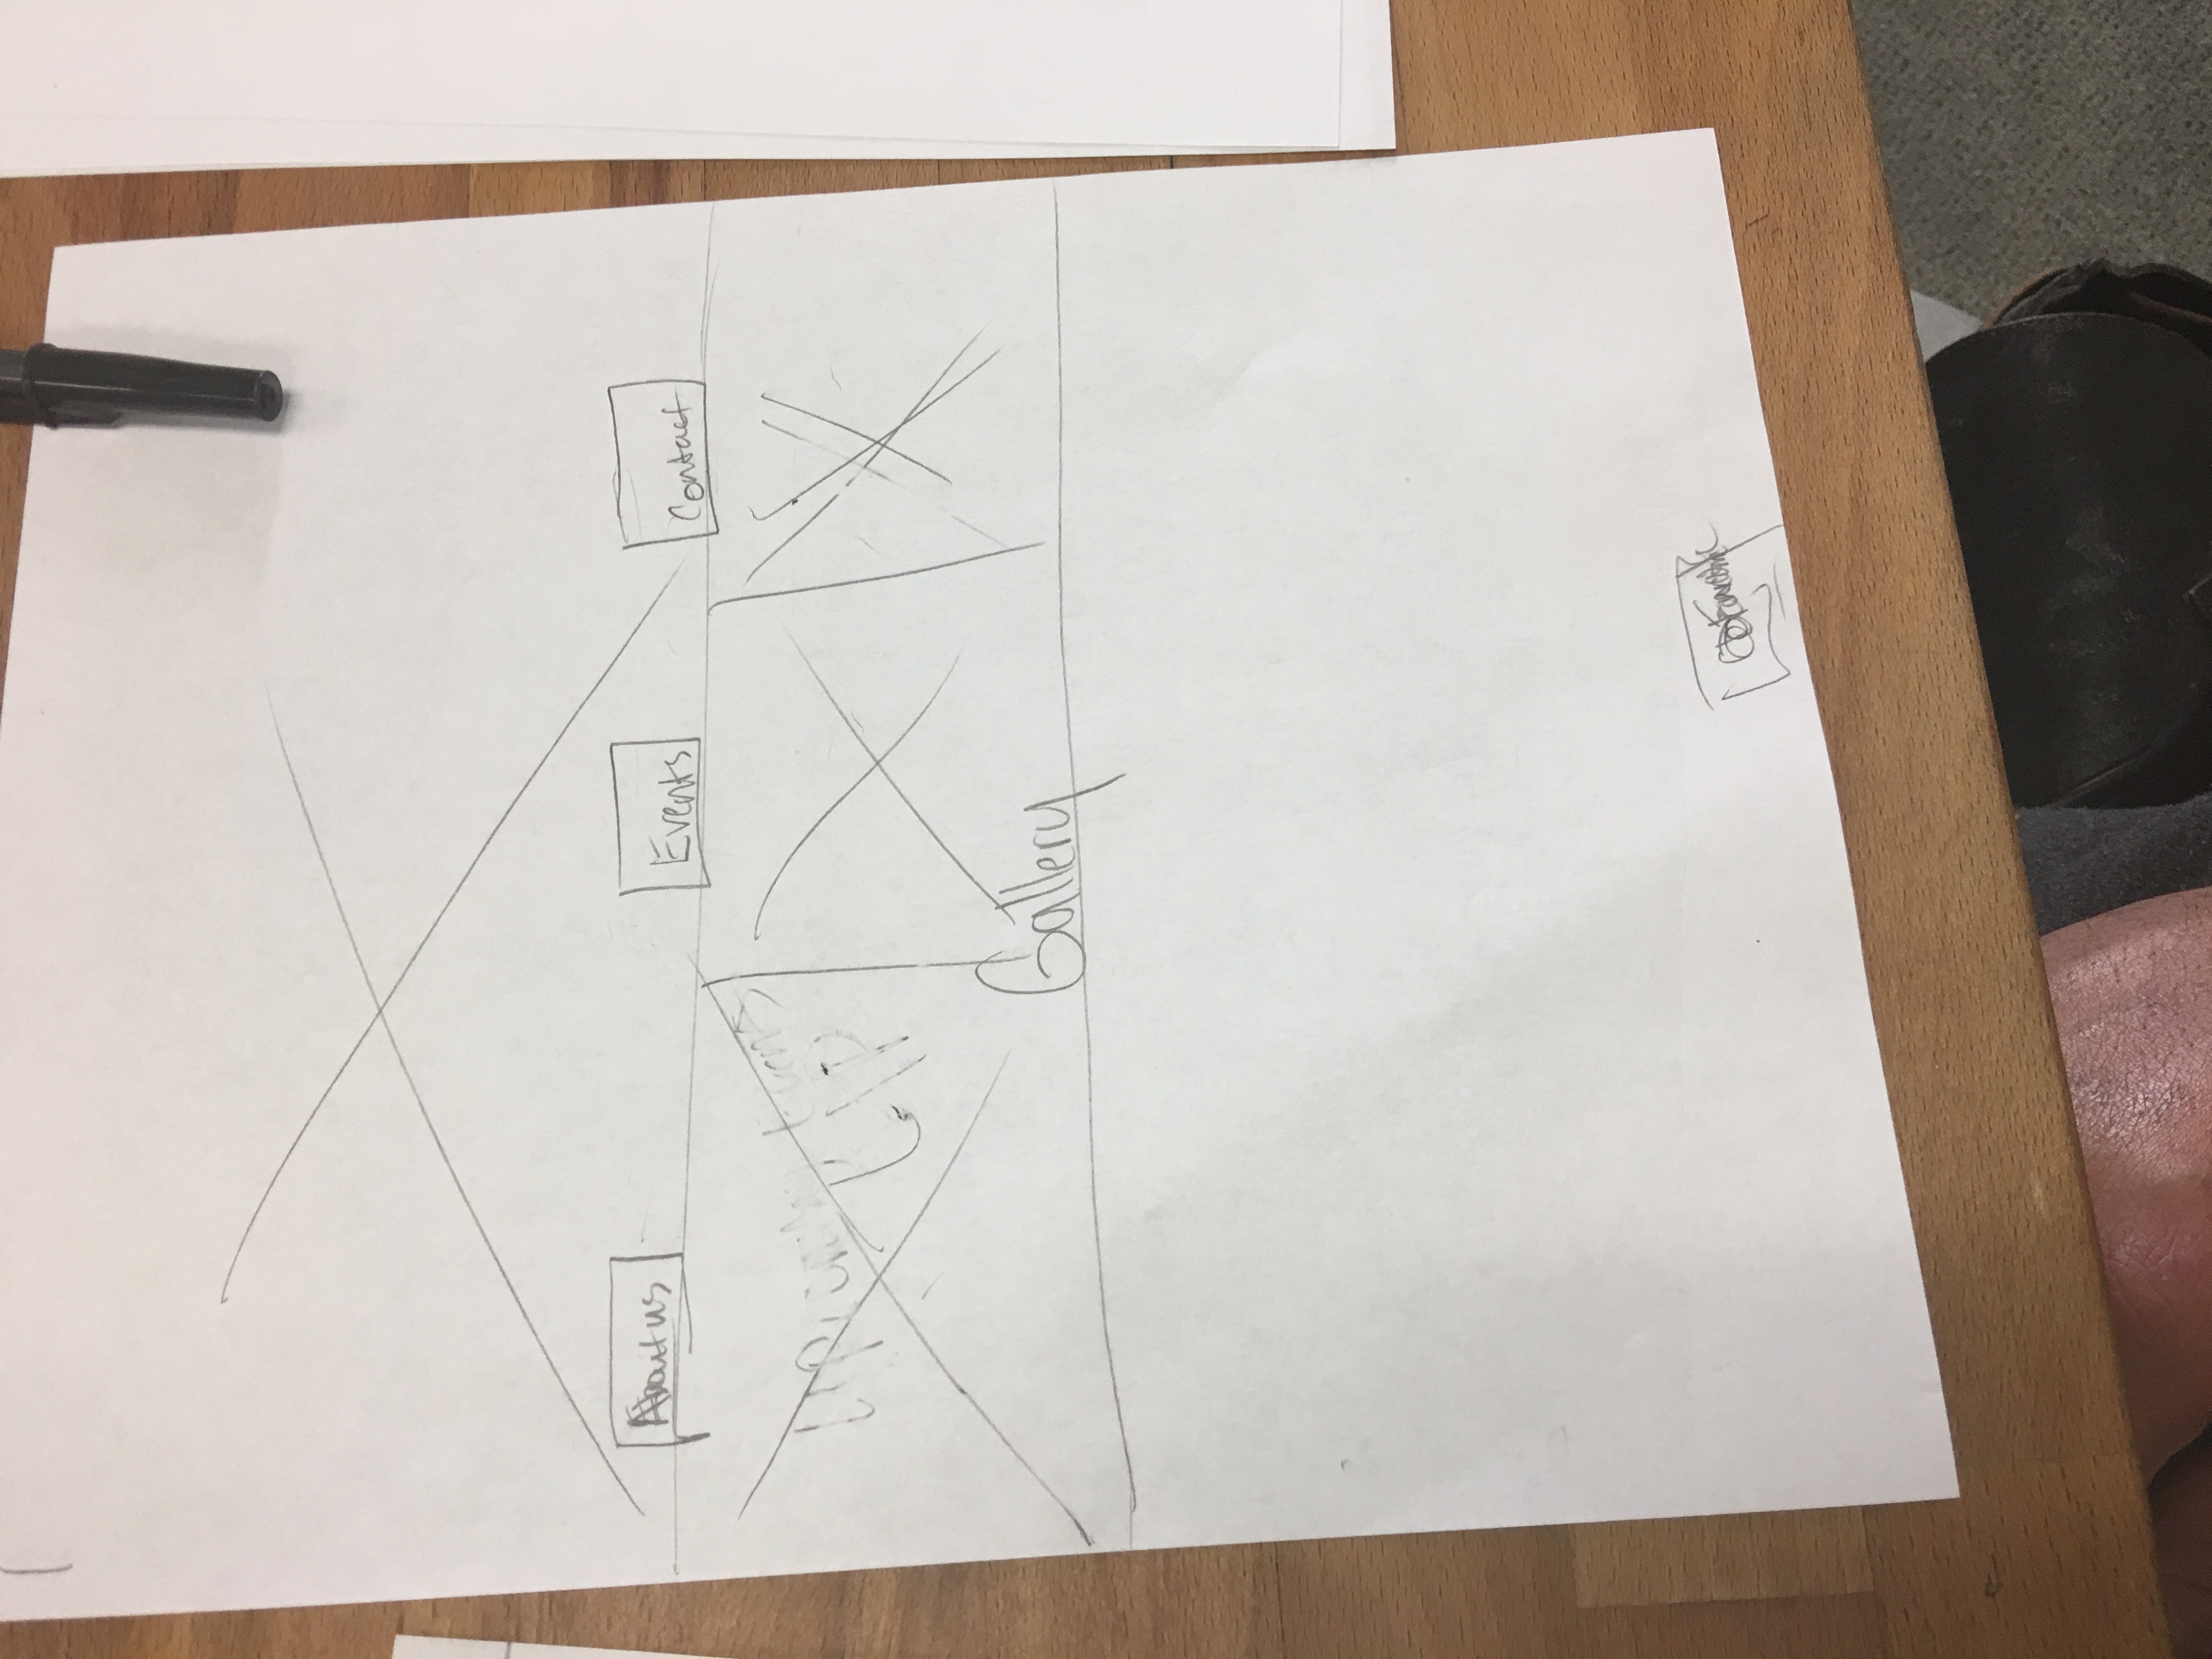 About us
Events
Contact
Upcoming
Events
Gallery